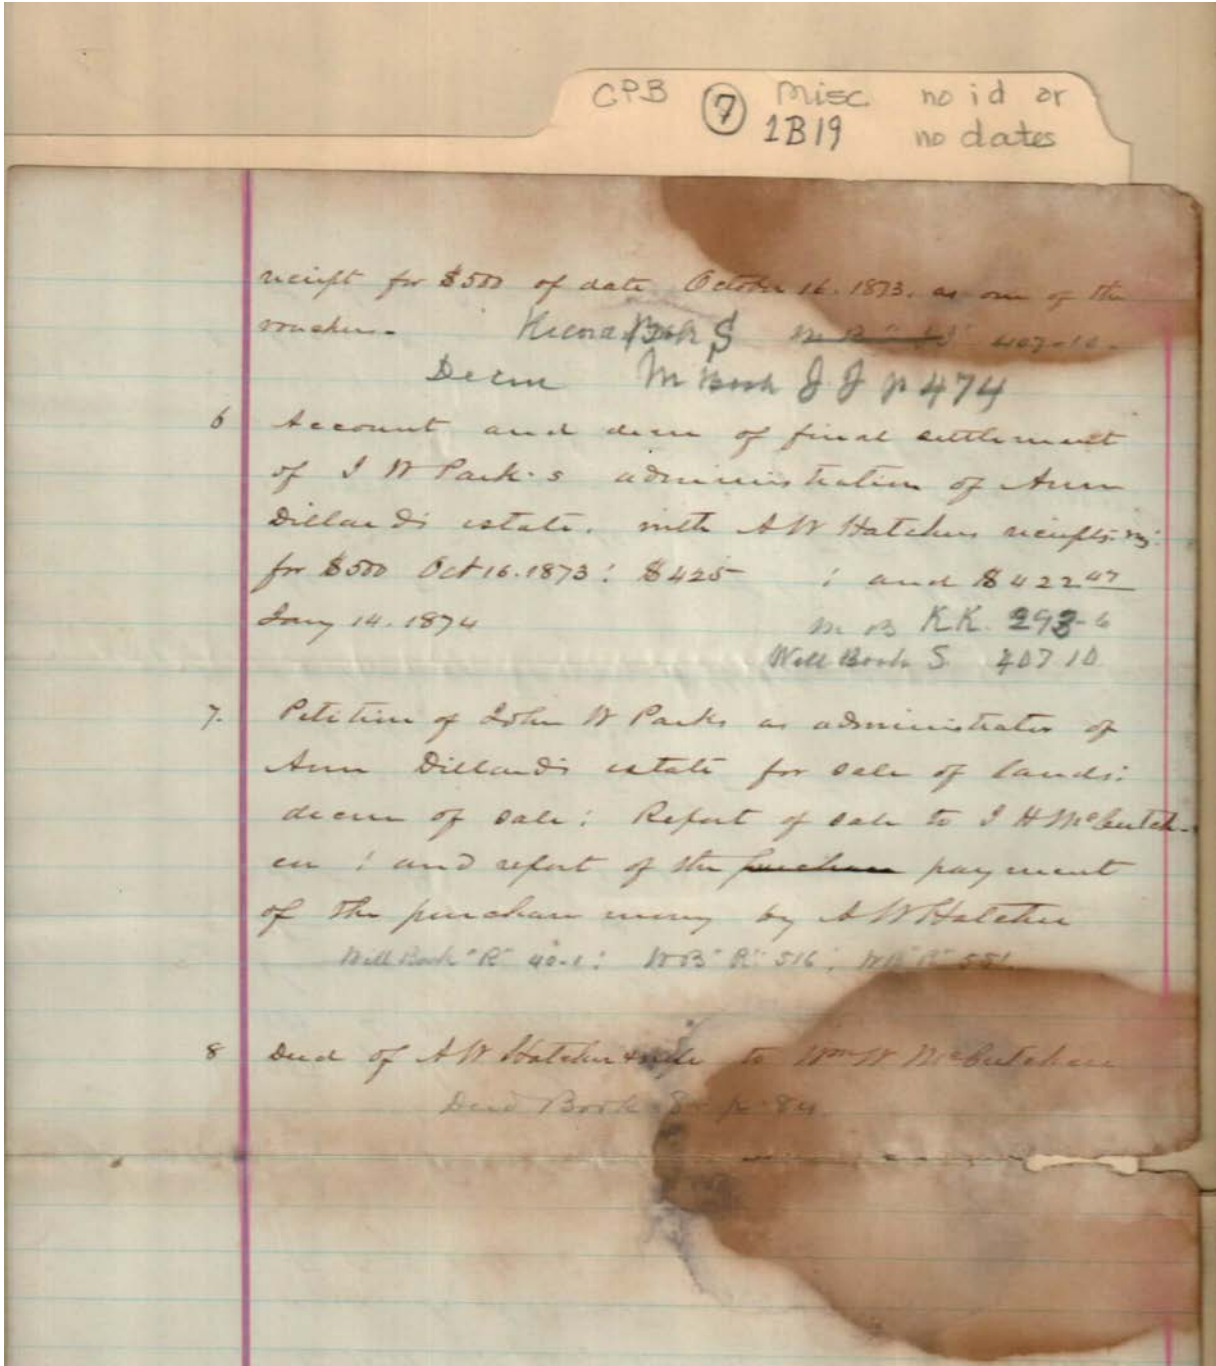 CPB 7 Misc no id or
1B19 no dates
receipt for $500 of date October 16. 1873. as one of the
vouchers. Record Book S M B "JJ" 407-10-
Decree M Book J J p 474
6 Account and decree of final settlement
of J W Park's administration of Ann
Dillard's estate. with A W Hatchers receipts
for $500 Oct 16. 1873: $425 : and $422 47
Jany 14. 1874 M B KK. 293-6
Will Book S. 407 10
7. Petition of John W Parks as administrator of
Ann Dillard's estate for sale of lands:
decree of sale: Report of sale to J H McCutch-
en : and report of the purchase payment
of the purchase money by A W Hatcher
Will Book "R" 40-1: W B "R" 516; W B "R" 551
8 Deed of A W Hatcher & wife to Wm W McCutchen
Deed Book 8 p. 84